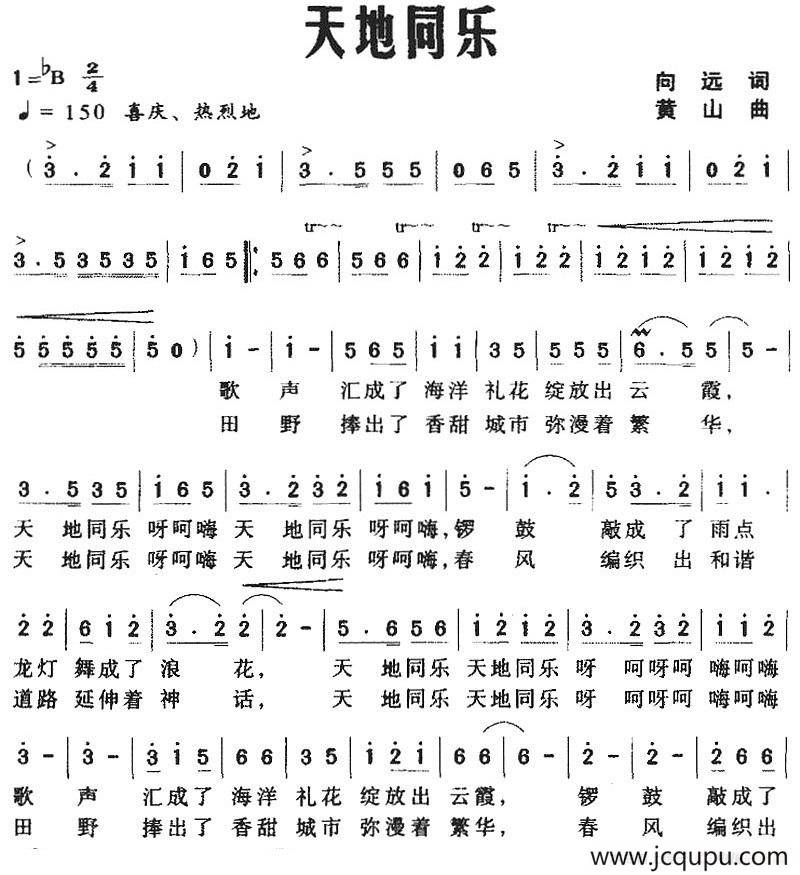 天地同乐
1=♭B 2/4
向远词
♩= 150 喜庆、热烈地
黄山曲
( 3 . 2 1 1 | 0 2 1 | 3 . 5 5 5 | 0 6 5 | 3 . 2 1 1 | 0 2 1 |
tr~~ tr~~ tr~~ tr~~
3 . 5 3 5 3 5 | 1 6 5 |: 5 6 6 | 5 6 6 | 1 2 2 | 1 2 2 | 1 2 1 2 | 1 2 1 2 |
5 5 5 5 5 | 5 0 ) | 1 - | 1 - | 5 6 5 | 1 1 | 3 5 | 5 5 5 | 6 . 5 5 | 5 - |
歌 声 汇成了 海洋 礼花 绽放出 云 霞,
田 野 捧出了 香甜 城市 弥漫着 繁 华,
3 . 5 3 5 | 1 6 5 | 3 . 2 3 2 | 1 6 1 | 5 - | 1 . 2 | 5 3 2 | 1 1 . |
天 地同乐 呀呵嗨 天 地同乐 呀呵嗨,锣 鼓 敲成 了 雨点
天 地同乐 呀呵嗨 天 地同乐 呀呵嗨,春 风 编织 出 和谐
2 2 | 6 1 2 | 3 . 2 | 2 2 | 2 - | 5 . 6 5 6 | 1 2 1 2 | 3 . 2 3 2 | 1 1 2 |
龙灯 舞成了 浪 花, 天 地同乐 天地同乐 呀 呵呀呵 嗨呵嗨
道路 延伸着 神 话, 天 地同乐 天地同乐 呀 呵呀呵 嗨呵嗨
3 - | 3 - | 3 1 5 | 6 6 | 3 5 | 1 2 1 | 6 6 | 6 - | 2 - | 2 - | 2 6 6 |
歌 声 汇成了 海洋 礼花 绽放出 云霞, 锣 鼓 敲成了
田 野 捧出了 香甜 城市 弥漫着 繁华, 春 风 编织出
www.jcqupu.com